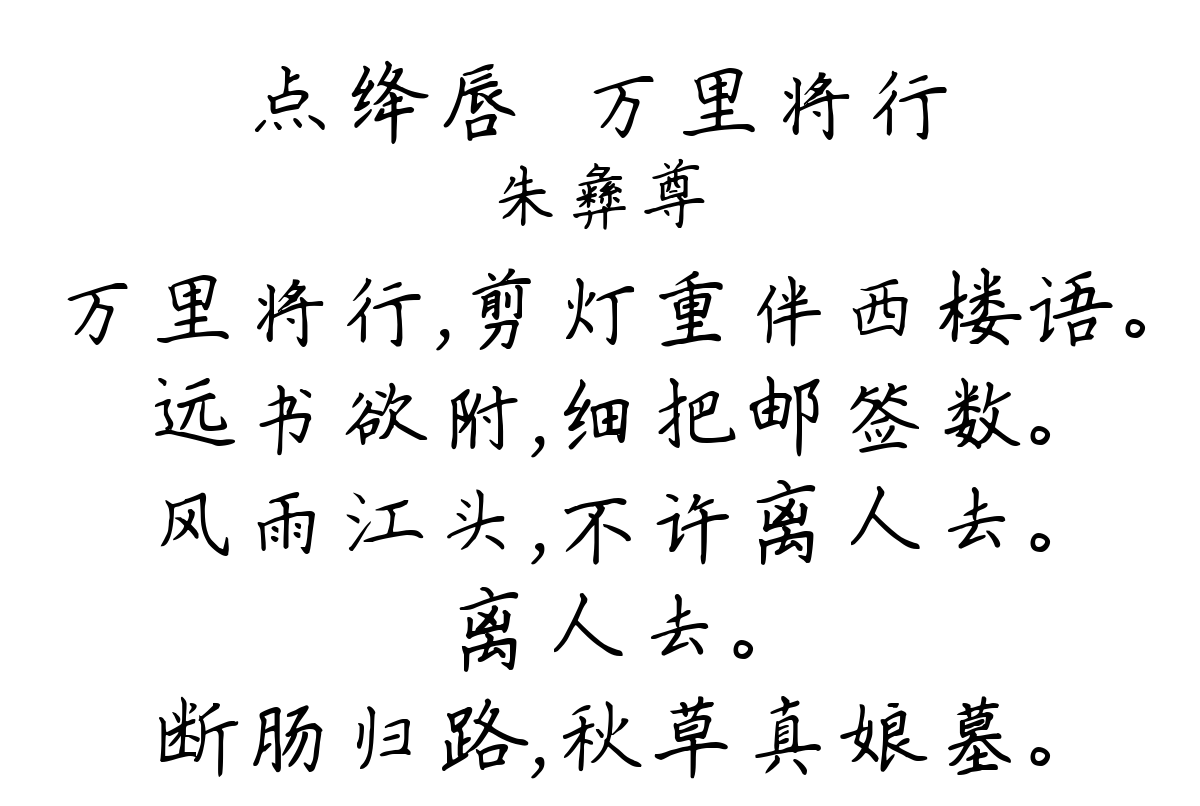 点绛唇 万里将行
朱彝尊
万里将行,剪灯重伴西楼语。
远书欲附,细把邮签数。
风雨江头,不许离人去。
离人去。
断肠归路,秋草真娘墓。